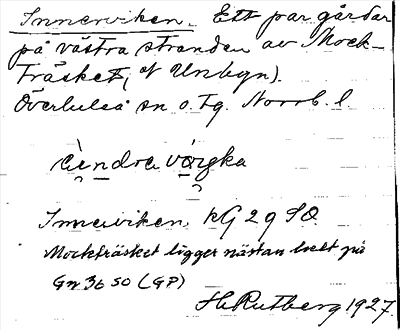 Innerviken. Ett par gårdar
på västra stranden av Mock-
träsket, (N Unbyn).
Överluleå sn o. tg. Norrb. l
Innerviken, kG 29 SO.
Mockträsket ligger nästan helt på
Gn 36 SO (GP)
H. Rutberg 1927.